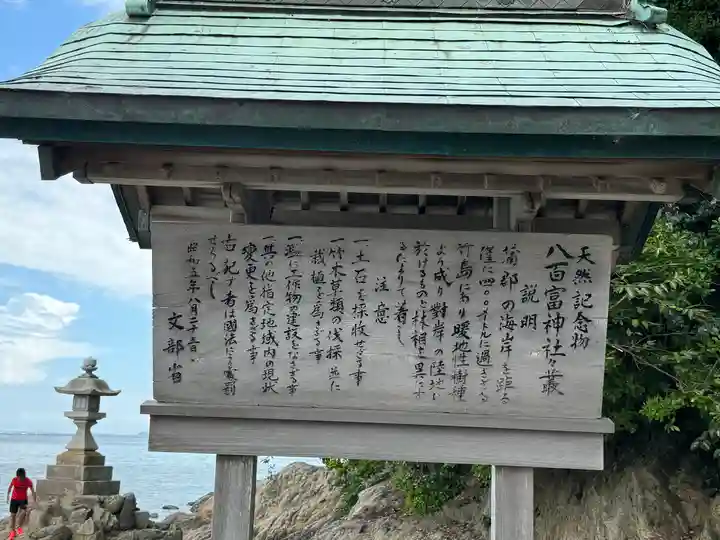 天然記念物
八百富神社々叢
説明
蒲郡の海岸を距る
僅に四〇〇メートルに過ぎざる
竹島にあり暖地性樹種
より成り對岸の陸地に
於けるものと林相を異にす
るによりて著き
注意
一土石を採收せざる事
一竹木草類の伐採並に
栽植を為さざる事
一無に工作物の建設をなさざる事
一其の他指定地域内の現狀
變更を為さざる事
右記す者は國法により處罰
せらるべし
昭和五年八月二十五日
文部省